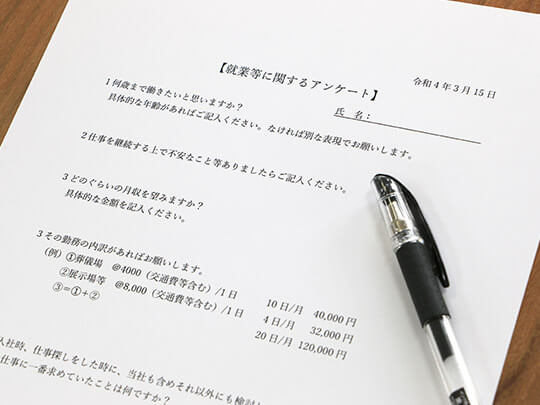 【就業等に関するアンケート】
令和4年3月15日
氏 名：
1何歳まで働きたいと思いますか？
具体的な年齢があればご記入ください。なければ別な表現でお願いします。
2仕事を継続する上で不安なこと等ありましたらご記入ください。
3どのぐらいの月収を望みますか？
具体的な金額を記入ください。
3その勤務の内訳があればお願いします。
(例) ①葬儀場 @4000（交通費等含む）/1日 10日/月 40,000円
②展示場等 @8,000（交通費等含む）/1日 4日/月 32,000円
③＝①＋② 20日/月 120,000円
入社時、仕事探しをした時に、当社も含めそれ以外にも検討
仕事に一番求めていたことは何ですか？